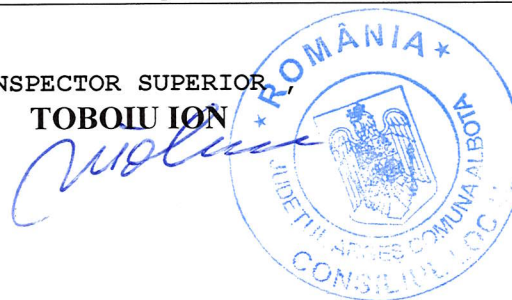 NSPECTOR SUPERIOR,
TOBOIU ION
* ROMÂNIA *
JUDEŢUL ARGEŞ COMUNA ALBOTA
CONSILIUL LOCAL